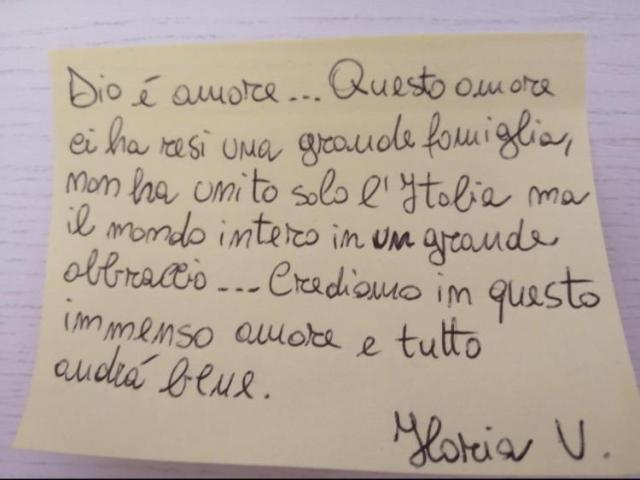 Dio é amore... Questo amore
ci ha resi una grande famiglia,
non ha unito solo l'Italia ma
il mondo intero in un grande
abbraccio... Crediamo in questo
immenso amore e tutto
andrá bene.
Ilaria V.